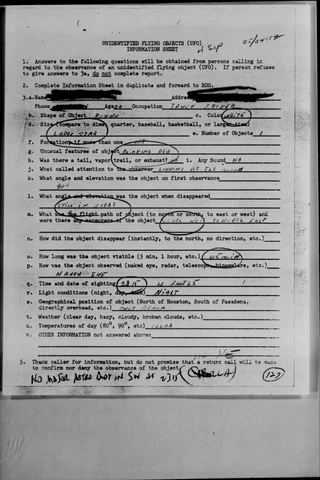 UNIDENTIFIED FLYING OBJECTS (UFO)
INFORMATION SHEET
1. Answers to the following questions will be obtained from persons calling in
regard to the observance of an unidentified flying object (UFO). If person refuses
to give answers to 3a, do not complete report.
2. Complete Information Sheet in duplicate and forward to
3.a. Name Address
Phone Age Occupation TRUCK DRIVER
b. Shape of Object ROUND c. Color WHITE
d. Size (compare to dime, quarter, baseball, basketball, or larger item)
LARGE STAR e. Number of Objects 1
f. Formation, if more than one NA
g. Unusual features of object BLINKING RED
h. Was there a tail, vapor trail, or exhaust? i. Any Sound NO
j. What called attention to the observer LOOKING AT THE
k. What angle and elevation was the object on first observance
90°
l. What angle and elevation was the object when disappeared
STILL IN SIGHT
m. What was the flight path of object (to north or south, to east or west) and
were there any maneuvers of the object
n. How did the object disappear (instantly, to the north, no direction, etc.)
o. How long was the object visible (5 min, 1 hour, etc.) 45 MIN
p. How was the object observed (naked eye, radar, telescope, binoculars, etc.)
NAKED EYE
q. Time and date of sighting 2315
r. Light conditions (night, day, NIGHT
s. Geographical position of object (North of Houston, South of Pasadena,
directly overhead, etc.)
t. Weather (clear day, hazy, cloudy, broken clouds, etc.)
u. Temperatures of day (80°, 90°, etc) CLEAR
v. OTHER INFORMATION not answered above
NONE
5. Thank caller for information, but do not promise that a return call will be made
to confirm nor deny the observance of the object.
NO MAJOR ASTRO BODY IN SW AT 2315